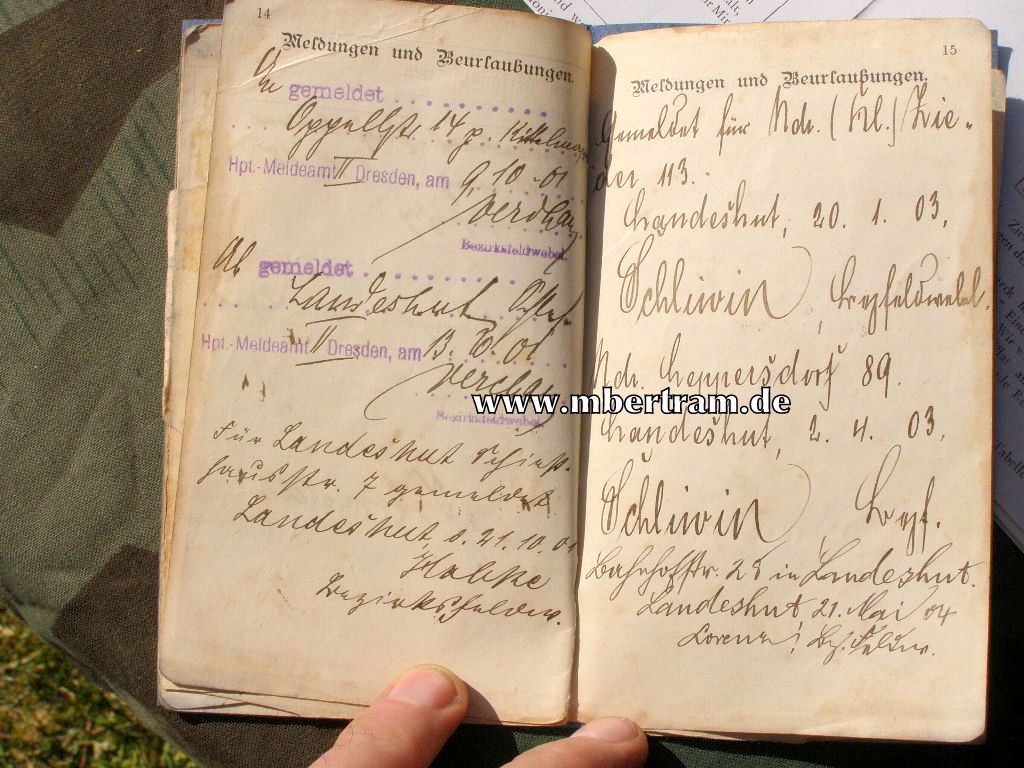 14
Meldungen und Beurlaubungen.
An gemeldet
Oppellstr. 14 p.
Hpt.-Meldeamt II Dresden, am 9.10.01
Bezirksfeldwebel.
Ab gemeldet
Landeshut
Hpt.-Meldeamt II Dresden, am 13.10.01
Bezirksfeldwebel.
Für Landeshut Schieß-
hausstr. 7 gemeldet
Landeshut d. 21.10.01
Bezirksfeldw.
15
Meldungen und Beurlaubungen.
Gemeldet für Ndr. (Kl.) Zie-
der 113.
Landeshut, 20. 1. 03.
Schliwin, Bezfeldwebel.
Ndr. Leppersdorf 89.
Landeshut, 2. 4. 03.
Schliwin Bezf.
Bahnhofstr. 25 in Landeshut.
Landeshut 21. Mai 04
Lorenz, Bez. Feldw.
www.mbertram.de